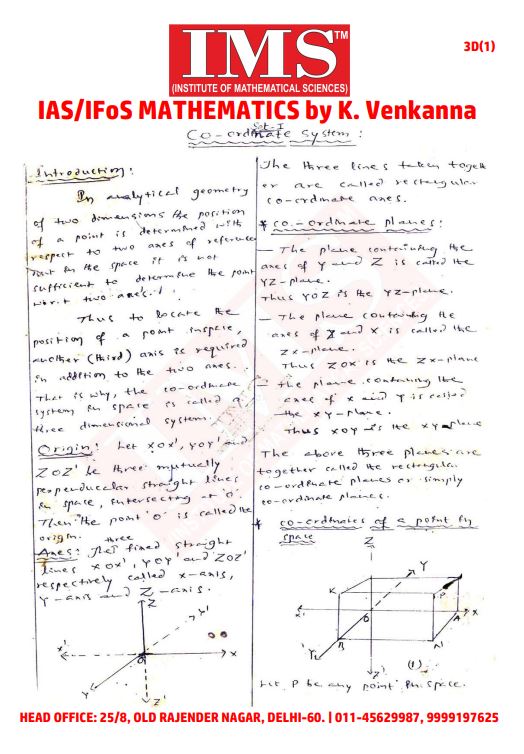 IMS™
(INSTITUTE OF MATHEMATICAL SCIENCES)
3D(1)
IAS/IFoS MATHEMATICS by K. Venkanna
Set-I
Co-ordinate System:
Introduction:
In analytical geometry
of two dimensions the position
of a point is determined with
respect to two axes of reference
but in the space it is not
sufficient to determine the point
w.r.t two axes.
Thus to locate the
position of a point inspace,
another (third) axis is required
in addition to the two axes.
That is why, the co-ordinate
system in space is called a
three dimensional system.
Origin: Let XOX', YOY' and
ZOZ' be three mutually
perpendicular straight lines
in space, intersecting at 'O'.
Then the point 'O' is called the
origin.
three
Axes: The fixed straight
lines XOX', YOY' and ZOZ'
respectively called x-axis,
Y-axis and Z-axis.
Z
Y'
X'
O
X
Y
Z'
The three lines taken togeth
er are called rectangular
co-ordinate axes.
* co-ordinate planes:
— The plane containing the
axes of Y and Z is called the
YZ-plane.
Thus YOZ is the YZ-plane.
— The plane containing the
axes of Z and X is called the
ZX-plane.
Thus ZOX is the ZX-plane
— the plane containing the
axes of X and Y is called
the XY-plane.
Thus XOY is the XY plane
The above three planes are
together called the rectangular
co-ordinate planes or simply
co-ordinate planes.
* co-ordinates of a point in
space
Z
Y
K
P
X'
O
A
X
B
N
Y'
Z'
(1)
Let P be any point in space.
HEAD OFFICE: 25/8, OLD RAJENDER NAGAR, DELHI-60. | 011-45629987, 9999197625